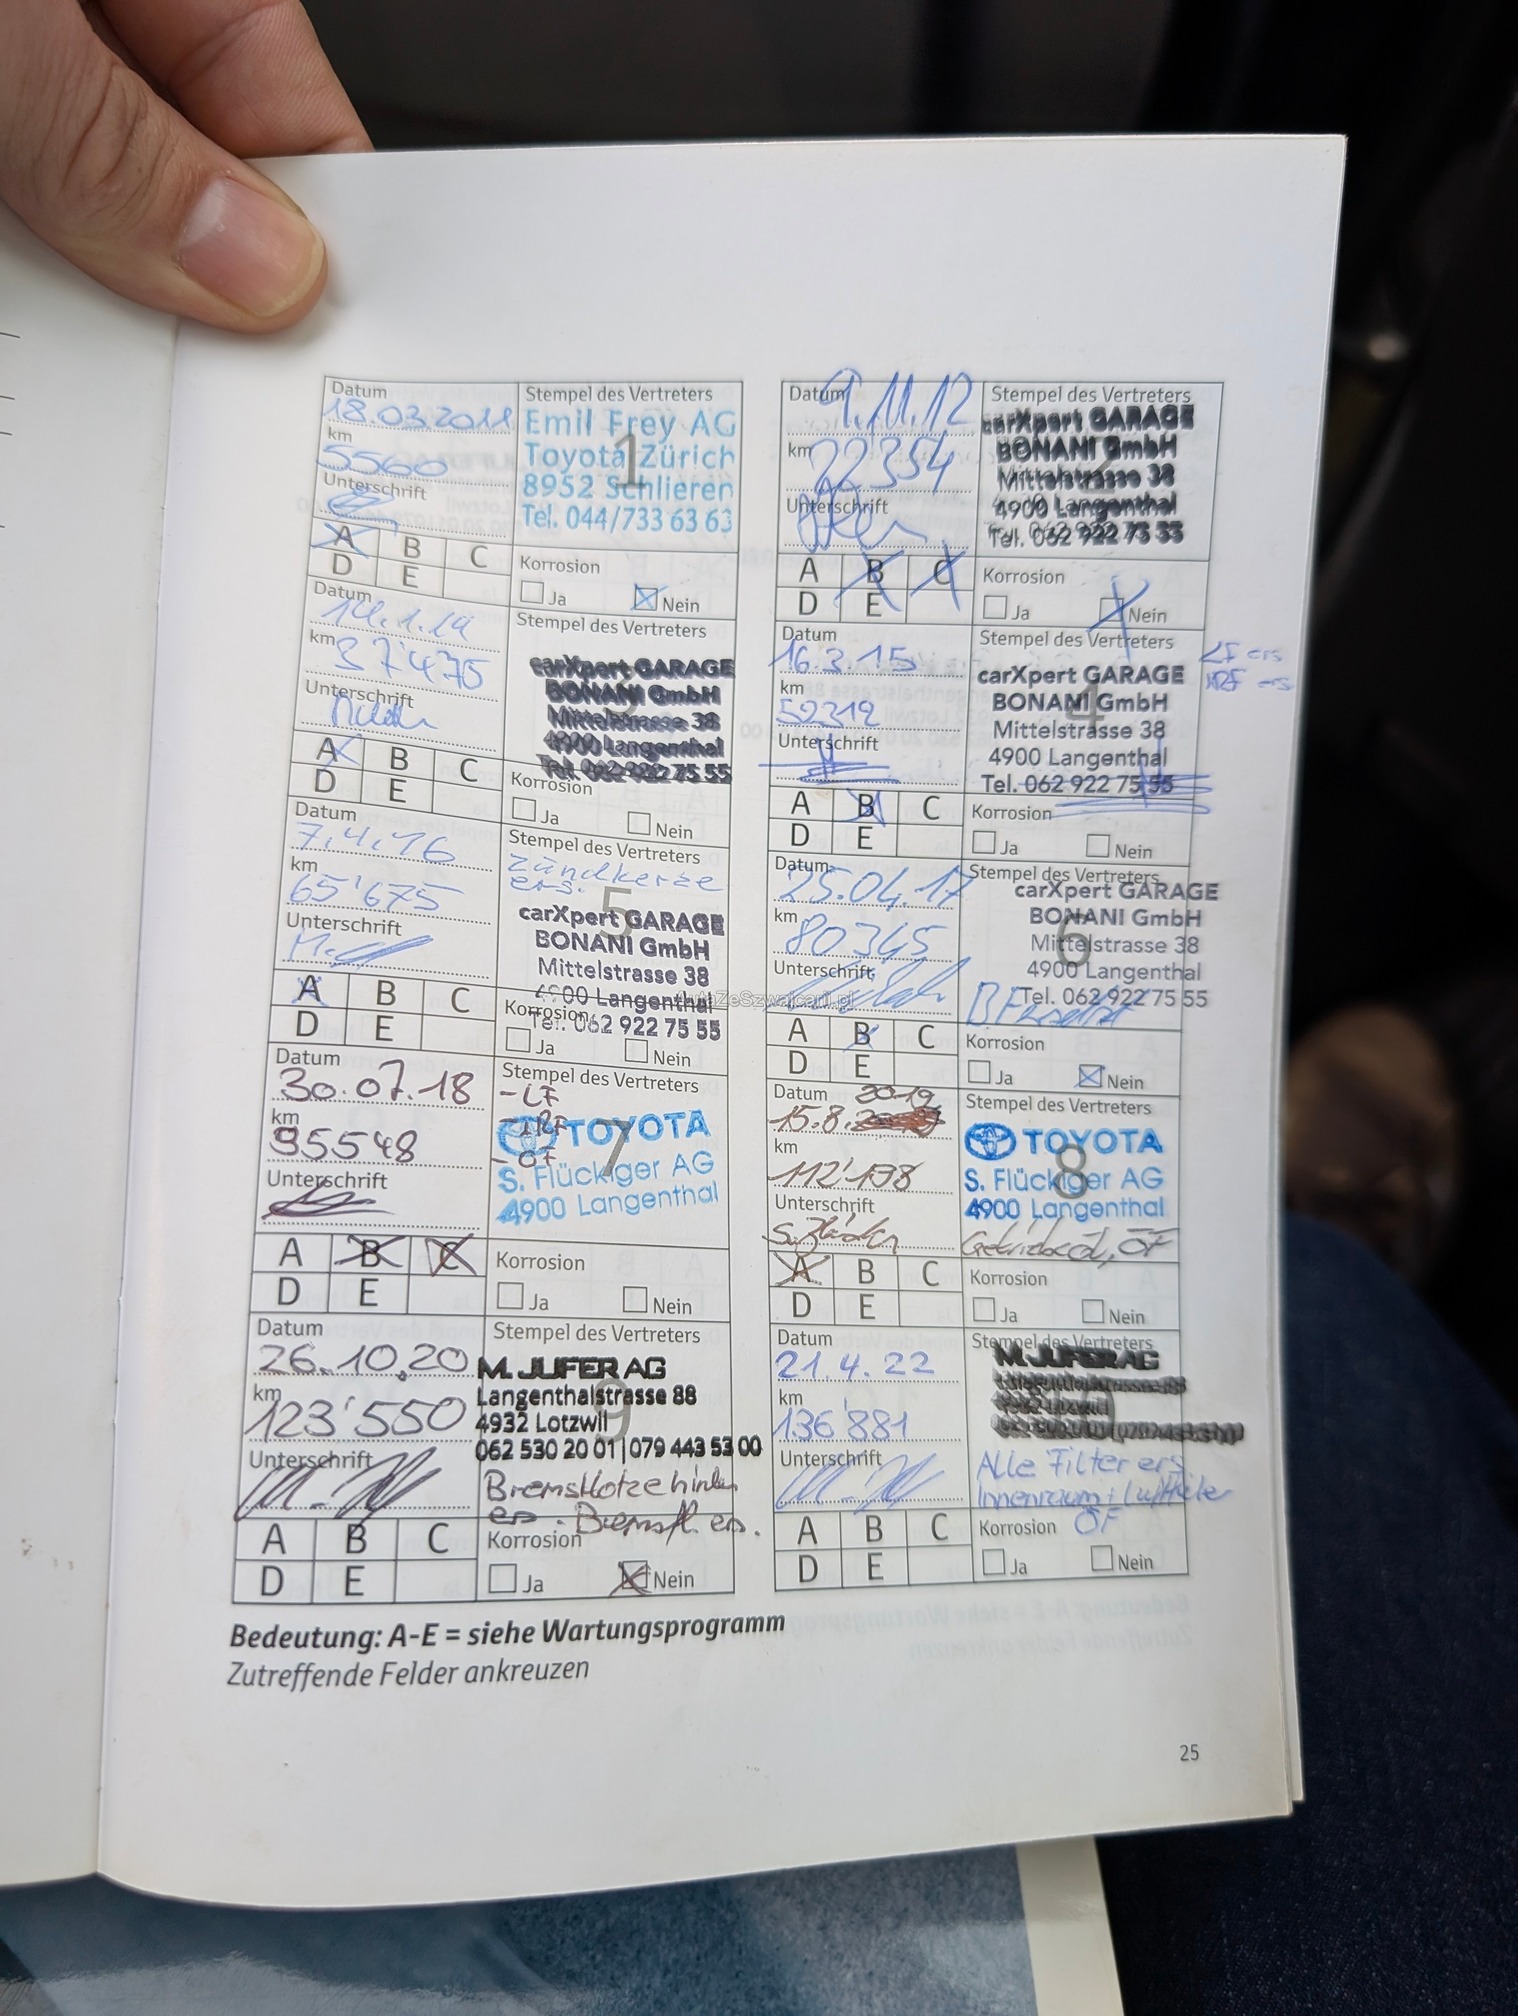 Datum
18.03.2011
km
5560
Unterschrift
Stempel des Vertreters
1
Emil Frey AG
Toyota Zürich
8952 Schlieren
Tel. 044/733 63 63
A B C
D E
Korrosion
Ja Nein
Datum
9.11.12
km
22354
Unterschrift
Stempel des Vertreters
carXpert GARAGE
BONANI GmbH
Mittelstrasse 38
4900 Langenthal
Tel. 062 922 75 55
A B C
D E
Korrosion
Ja Nein
Datum
14.1.14
km
37'475
Unterschrift
Stempel des Vertreters
carXpert GARAGE
BONANI GmbH
Mittelstrasse 38
4900 Langenthal
Tel. 062 922 75 55
A B C
D E
Korrosion
Ja Nein
Datum
16.3.15
km
52312
Unterschrift
Stempel des Vertreters
4
carXpert GARAGE
BONANI GmbH
Mittelstrasse 38
4900 Langenthal
Tel. 062 922 75 55
LF ers
ers
A B C
D E
Korrosion
Ja Nein
Datum
7.4.16
km
65'675
Unterschrift
Stempel des Vertreters
zündkerze
ers.
5
carXpert GARAGE
BONANI GmbH
Mittelstrasse 38
4900 Langenthal
Tel. 062 922 75 55
A B C
D E
Korrosion
Ja Nein
Datum
25.04.17
km
80345
Unterschrift
Stempel des Vertreters
6
carXpert GARAGE
BONANI GmbH
Mittelstrasse 38
4900 Langenthal
Tel. 062 922 75 55
BF ersetzt
A B C
D E
Korrosion
Ja Nein
AutaZeSzwajcarii.pl
Datum
30.07.18
km
95548
Unterschrift
Stempel des Vertreters
-LF
-IRF
-OF
7
TOYOTA
S. Flückiger AG
4900 Langenthal
A B C
D E
Korrosion
Ja Nein
Datum
15.8. 2019
km
112'198
Unterschrift
Stempel des Vertreters
8
TOYOTA
S. Flückiger AG
4900 Langenthal
Getriebeöl, ÖF
A B C
D E
Korrosion
Ja Nein
Datum
26.10.20
km
123'550
Unterschrift
Stempel des Vertreters
9
M. JUFER AG
Langenthalstrasse 88
4932 Lotzwil
062 530 20 01 | 079 443 53 00
Bremsklötze hinten
ers. Bremsfl. ers.
A B C
D E
Korrosion
Ja Nein
Datum
21.4.22
km
136'881
Unterschrift
Stempel des Vertreters
M. JUFER AG
Langenthalstrasse 88
4932 Lotzwil
Alle Filter ers
Innenraum + Luftfilter
ÖF
A B C
D E
Korrosion
Ja Nein
Bedeutung: A-E = siehe Wartungsprogramm
Zutreffende Felder ankreuzen
25